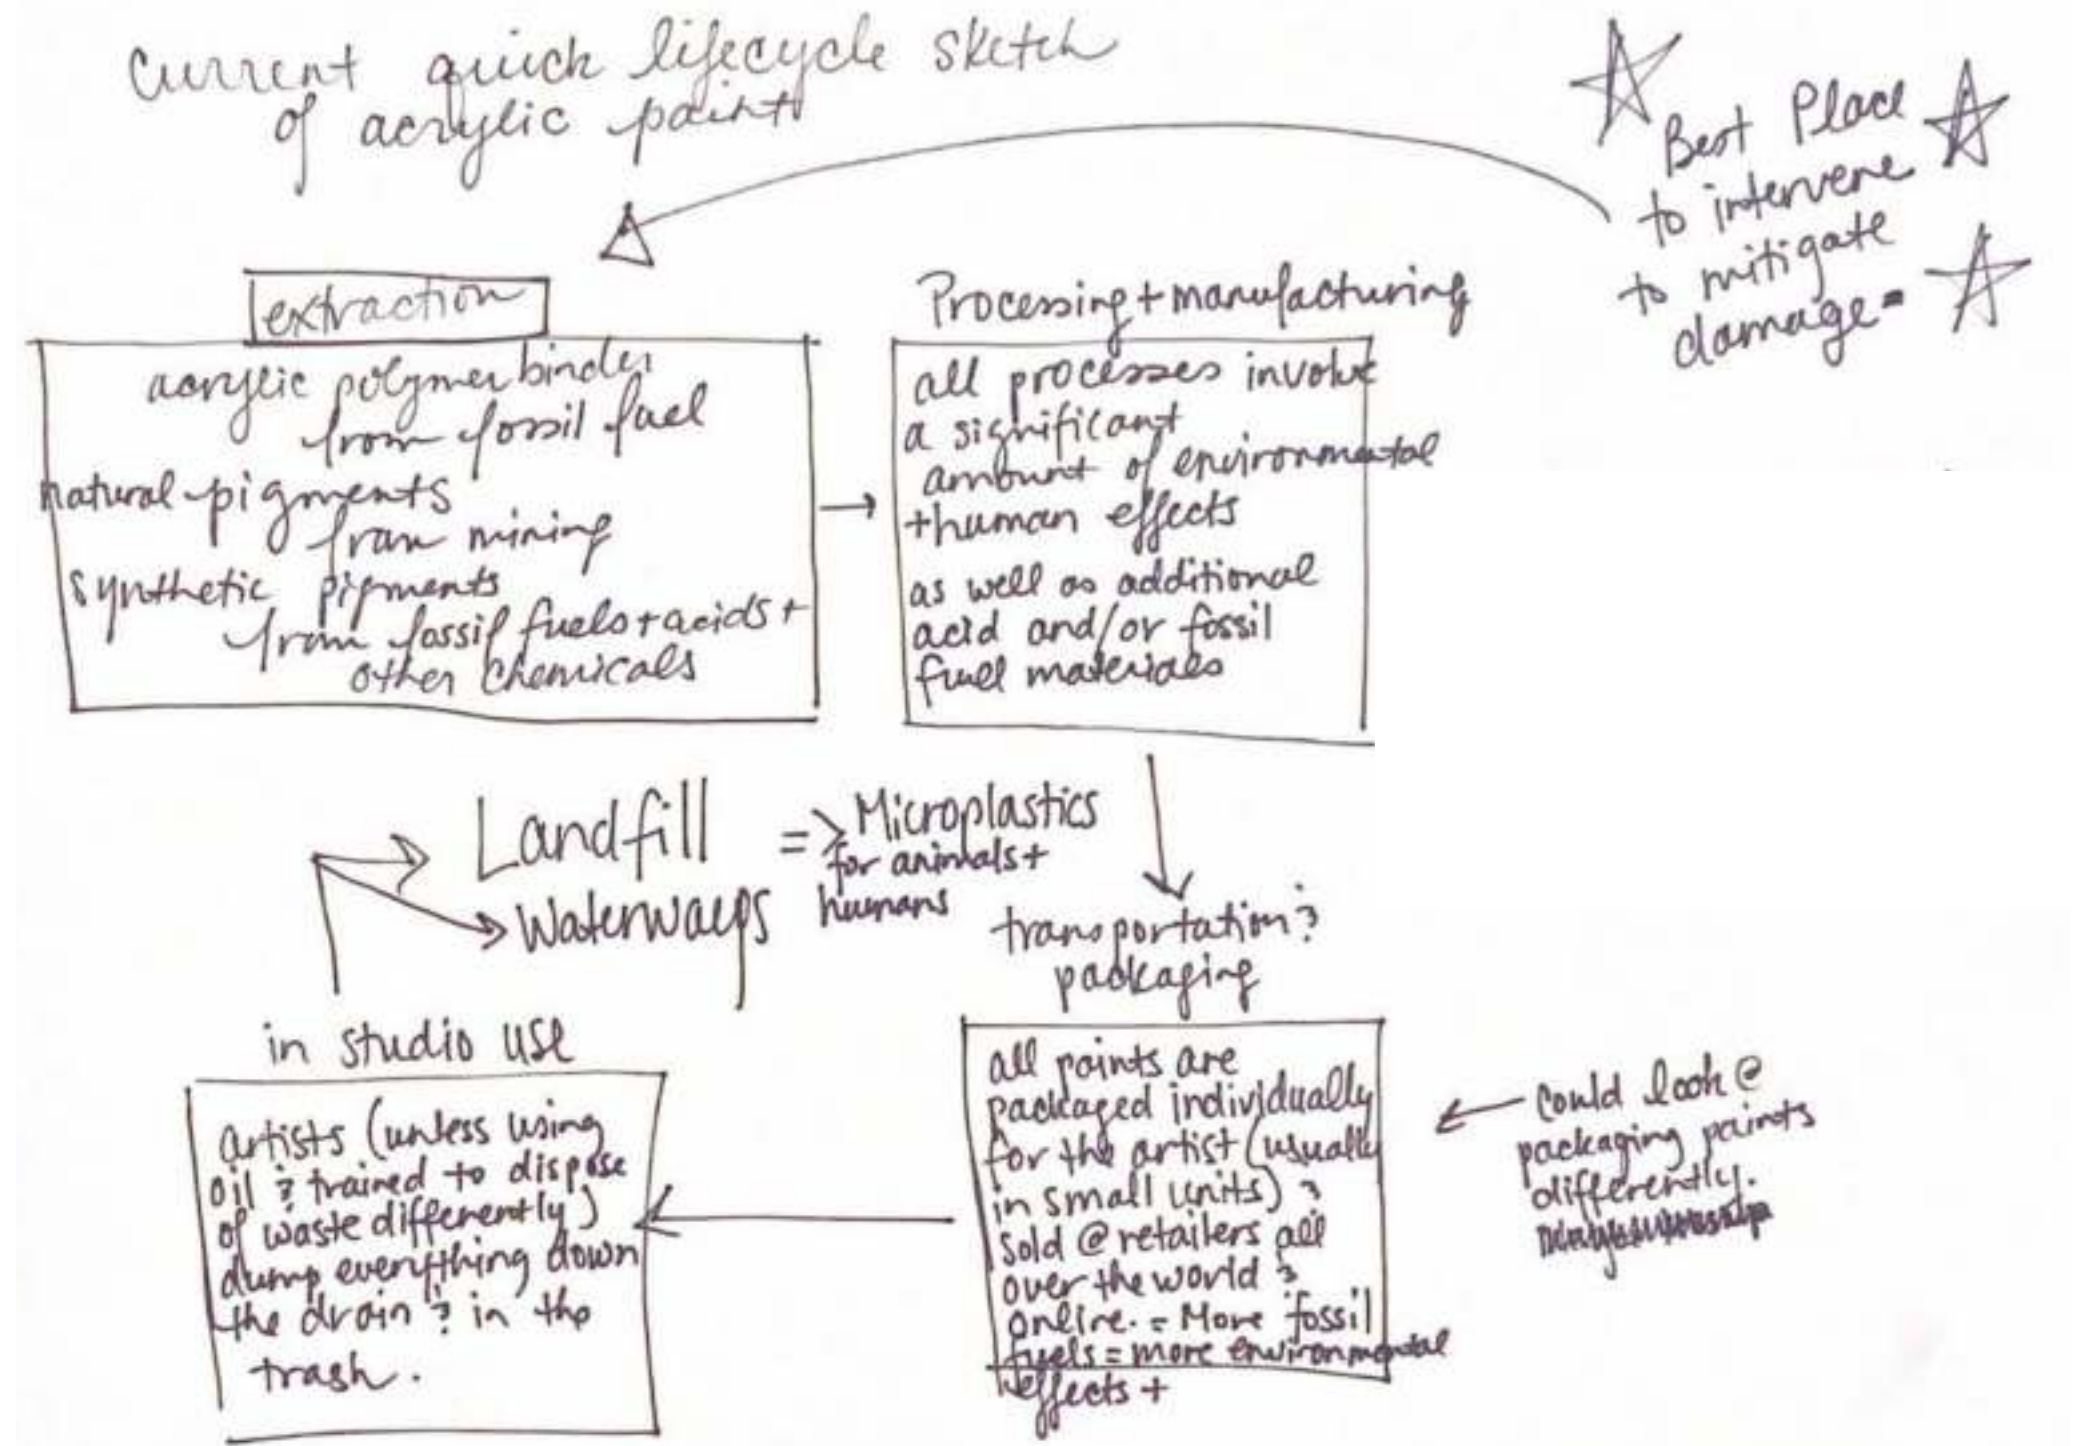 Current quick lifecycle sketch
of acrylic paint
Best Place
to intervene
to mitigate
damage =
extraction
acrylic polymer binder
from fossil fuel
natural pigments
from mining
synthetic pigments
from fossil fuels + acids +
other chemicals
Processing + manufacturing
all processes involve
a significant
amount of environmental
+ human effects
as well as additional
acid and/or fossil
fuel materials
Landfill
Waterways
=> Microplastics
for animals +
humans
transportation &
packaging
all paints are
packaged individually
for the artist (usually
in small units) &
sold @ retailers all
over the world &
online. = More fossil
fuels = more environmental
effects +
could look @
packaging paints
differently.
in studio use
artists (unless using
oil & trained to dispose
of waste differently)
dump everything down
the drain & in the
trash.